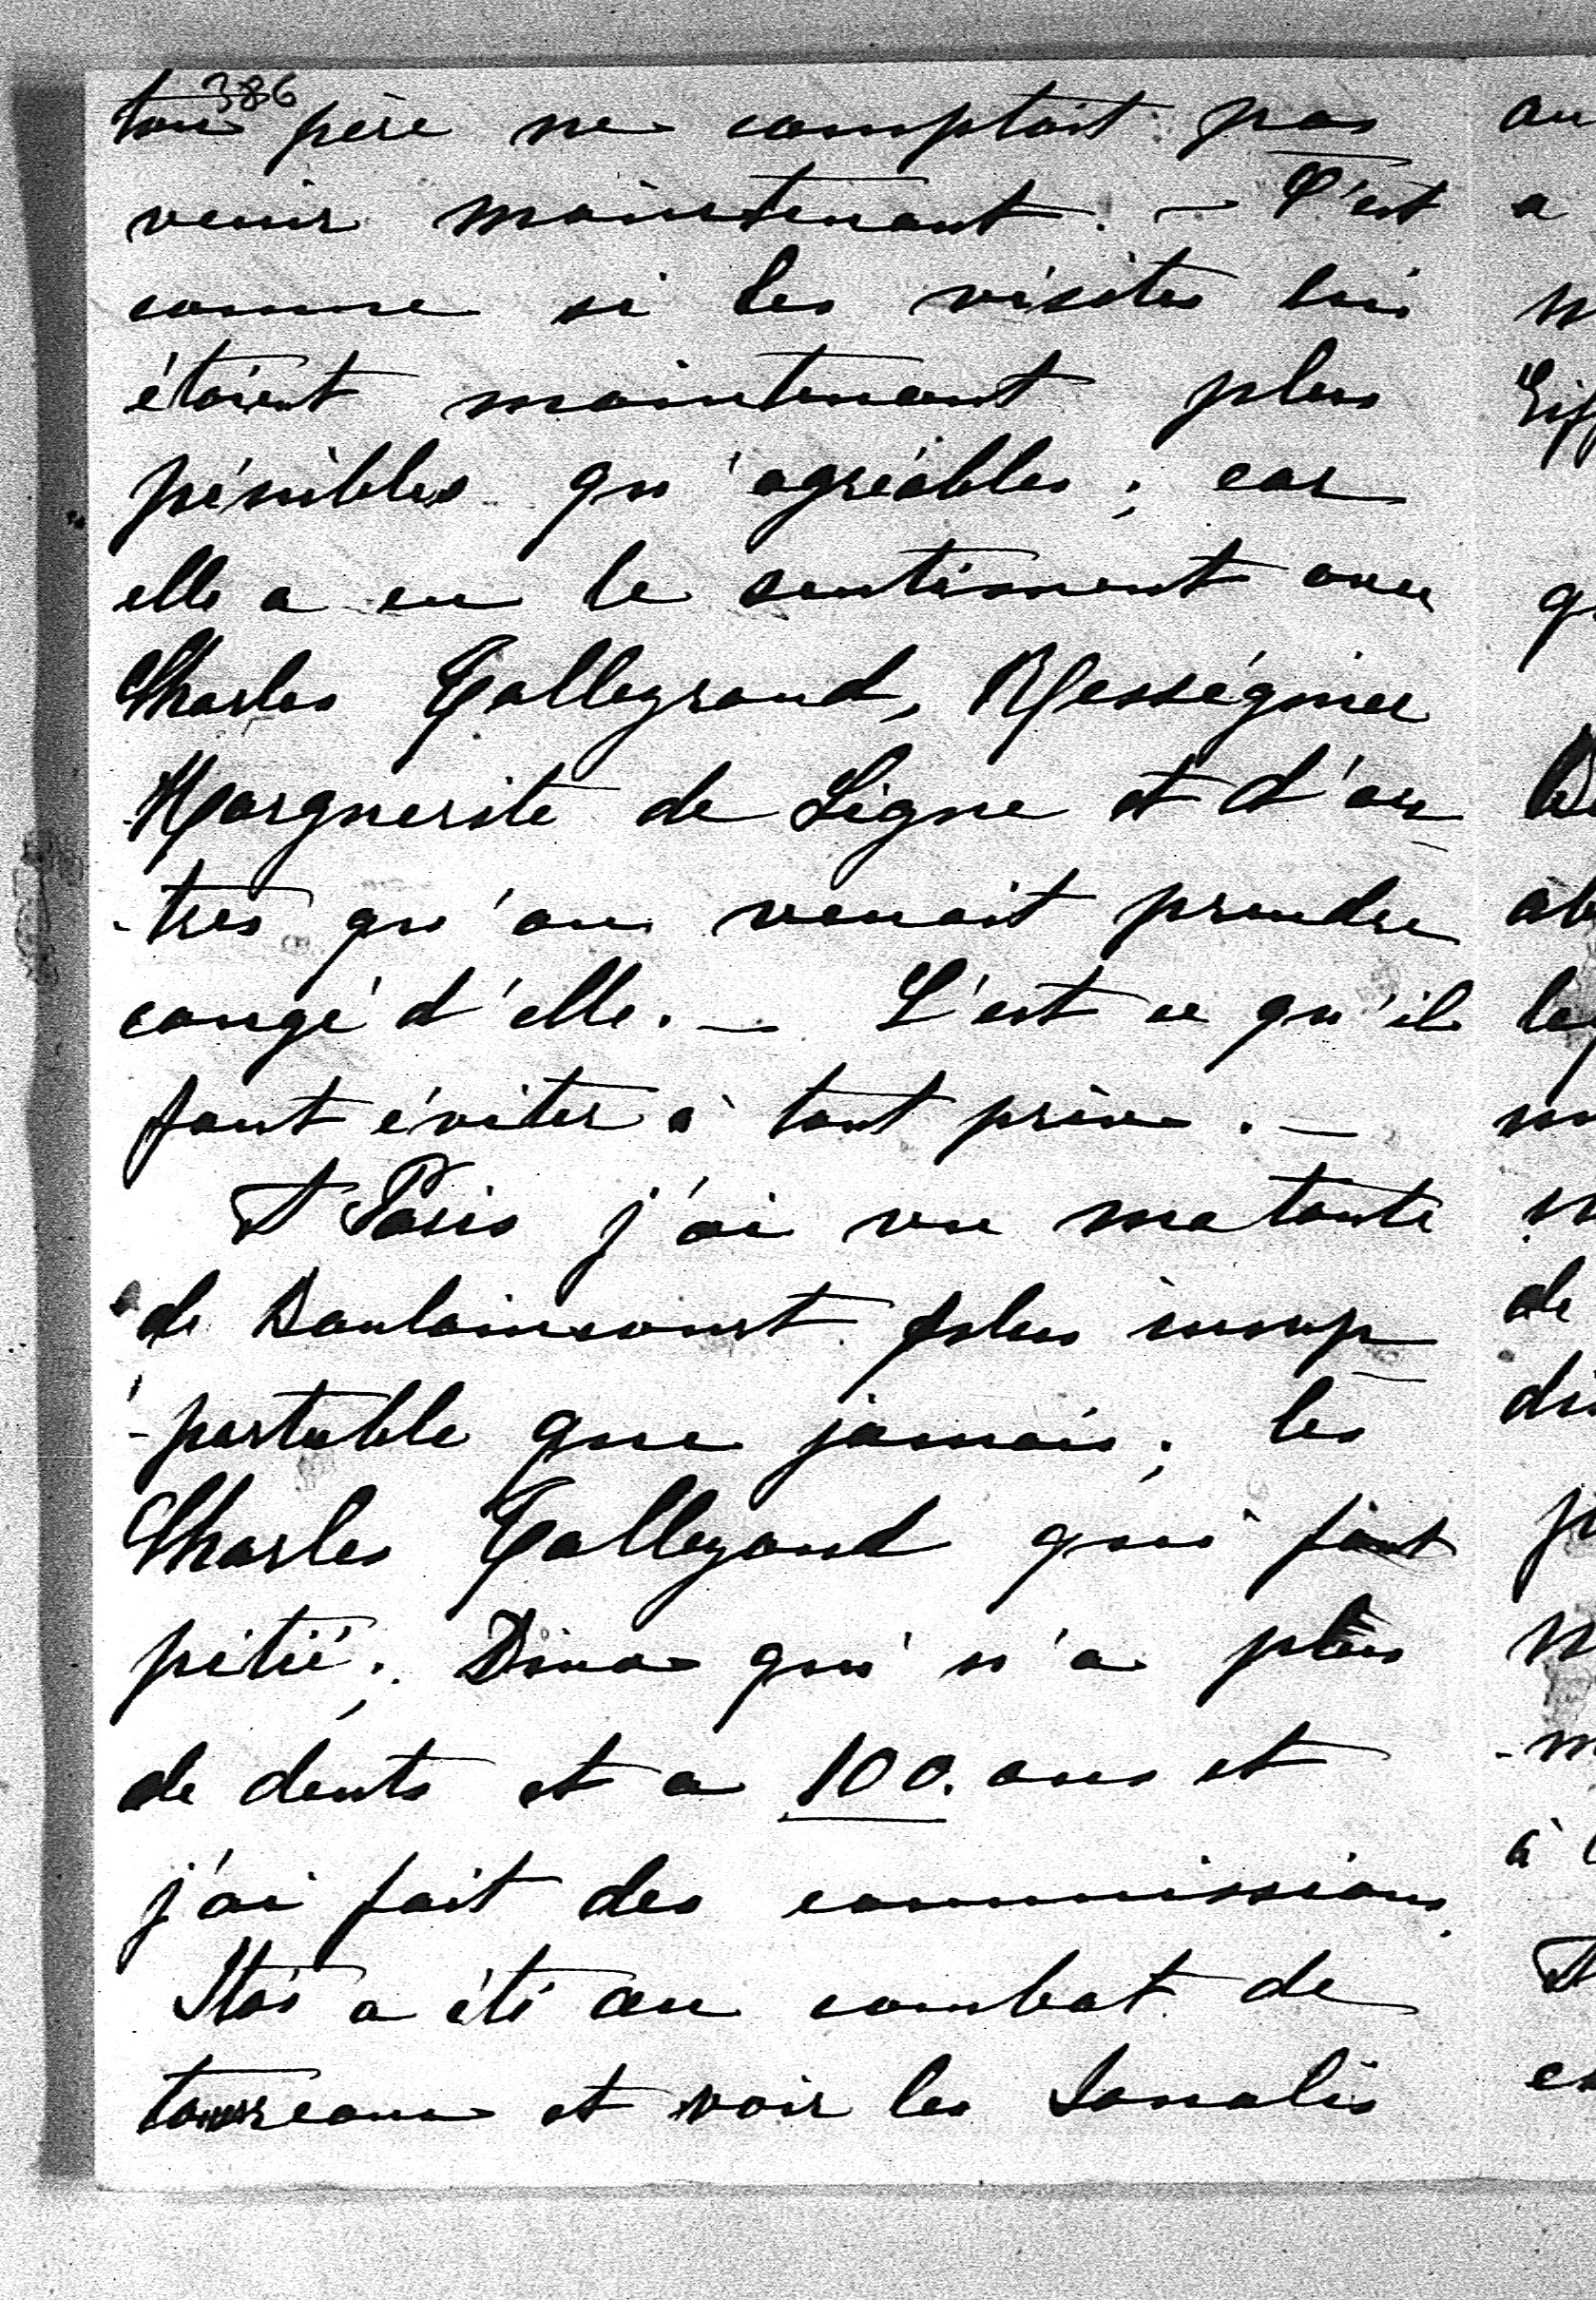 386
ton père ne comptait pas
venir maintenant. – C'est
comme si les visites lui
étaient maintenant plus
pénibles qu'agréables; car
elle a eu le sentiment avec
Charles Talleyrand, Rességuier
Marguerite de Ligne et d'au
-tres qu'on venait prendre
congé d'elle. – C'est ce qu'il
faut éviter à tout prix. –
A Paris j'ai vu ma tante
de Vaulaincourt plus insup
-portable que jamais; les
Charles Talleyrand qui font
pitié; Dino qui n'a plus
de dents et a 100. ans et
j'ai fait des commissions.
a été au combat de
taureaux et voir les Somalis